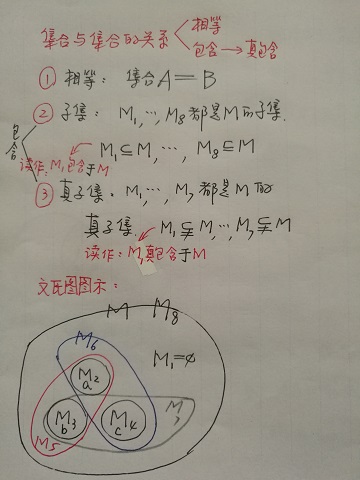 集合与集合的关系 相等
包含→真包含
① 相等: 集合A=B
包含
② 子集: M₁,…,M₈都是M的子集.
M₁⊆M,…,M₈⊆M
读作:M₁包含于M
③ 真子集. M₁,…,M₇都是M的
真子集. M₁⫋M,…,M₇⫋M
读作:M₁真包含于M
文氏图图示:
M M₈
M₆
M₁=φ
M₂
a
M₃
b
M₄
c
M₇
M₅